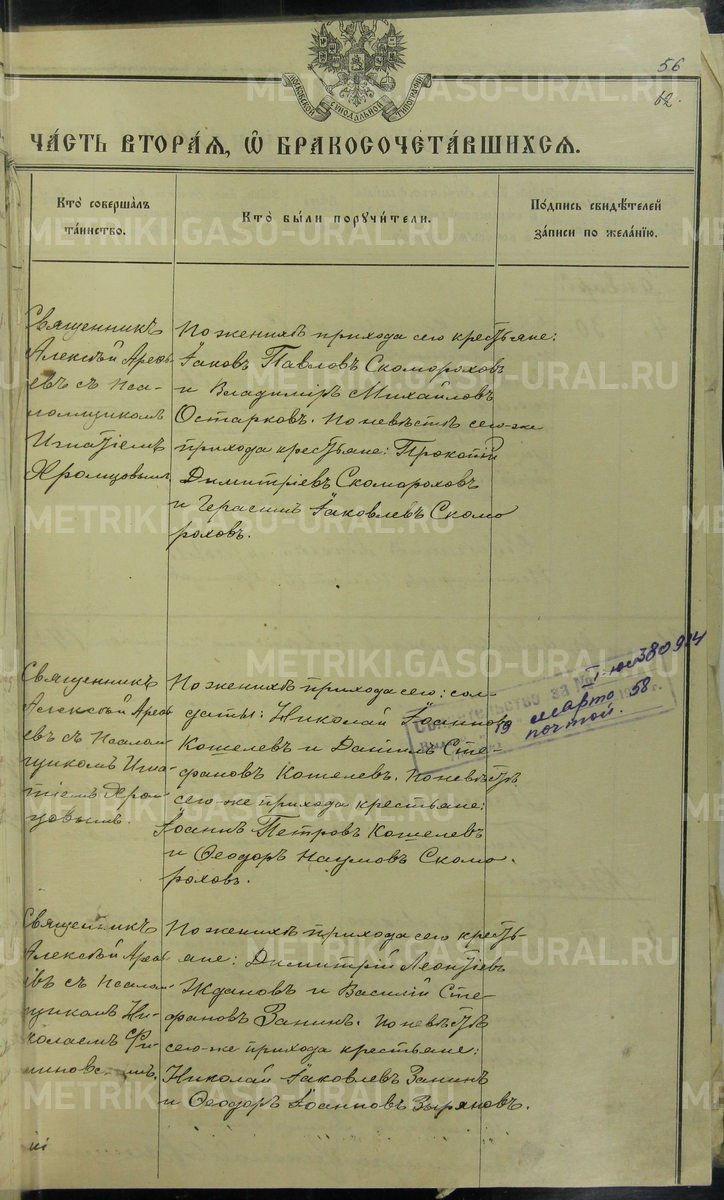 56
62.
МОСКОВСКОЙ СѴНОДАЛЬНОЙ ТИПОГРАФІИ
ЧА́СТЬ ВТОРА́Я, Ѽ БРАКОСОЧЕТА́ВШИХСЯ.
Кто̀ соверша́лъ
та́инство.
Кто̀ бы́ли поручи́тели.
По́дпись свидѣ́телей
за́писи по жела́нїю.
Священникъ
Алексѣй Арефь
евъ съ Псал
ломщикомъ
Игнатіемъ
Хромцовымъ
По женихѣ прихода сего крестьяне:
Іаковъ Павловъ Скомороховъ
и Владиміръ Михайловъ
Остарковъ. По невѣстѣ сего-же
прихода крестьяне: Прокопій
Димитріевъ Скомороховъ
и Герасимъ Іаковлевъ Скомо
роховъ.
Священникъ
Алексѣй Арефь
евъ съ Псалом
щикомъ Игна
тіемъ Хром
цовымъ.
По женихѣ прихода сего: сол-
даты: Николай Іоанновъ
Кошелевъ и Даніилъ Сте-
фановъ Кошелевъ. По невѣстѣ
сего-же прихода крестьяне:
Іоаннъ Петровъ Кошелевъ
и Ѳеодоръ Наумовъ Скомо-
роховъ.
I-ю 380914
19 марта 58
почтой.
Священникъ
Алексѣй Арефь
евъ съ Псалом
щикомъ Ни-
колаемъ
По женихѣ прихода сего кресть-
яне: Димитрій Леонтіевъ
Ждановъ и Василій Сте-
фановъ Занинъ. По невѣстѣ
сего-же прихода крестьяне:
Николай Іаковлевъ Занинъ
и Ѳеодоръ Іоанновъ Зыряновъ.
METRIKI.GASO-URAL.RU